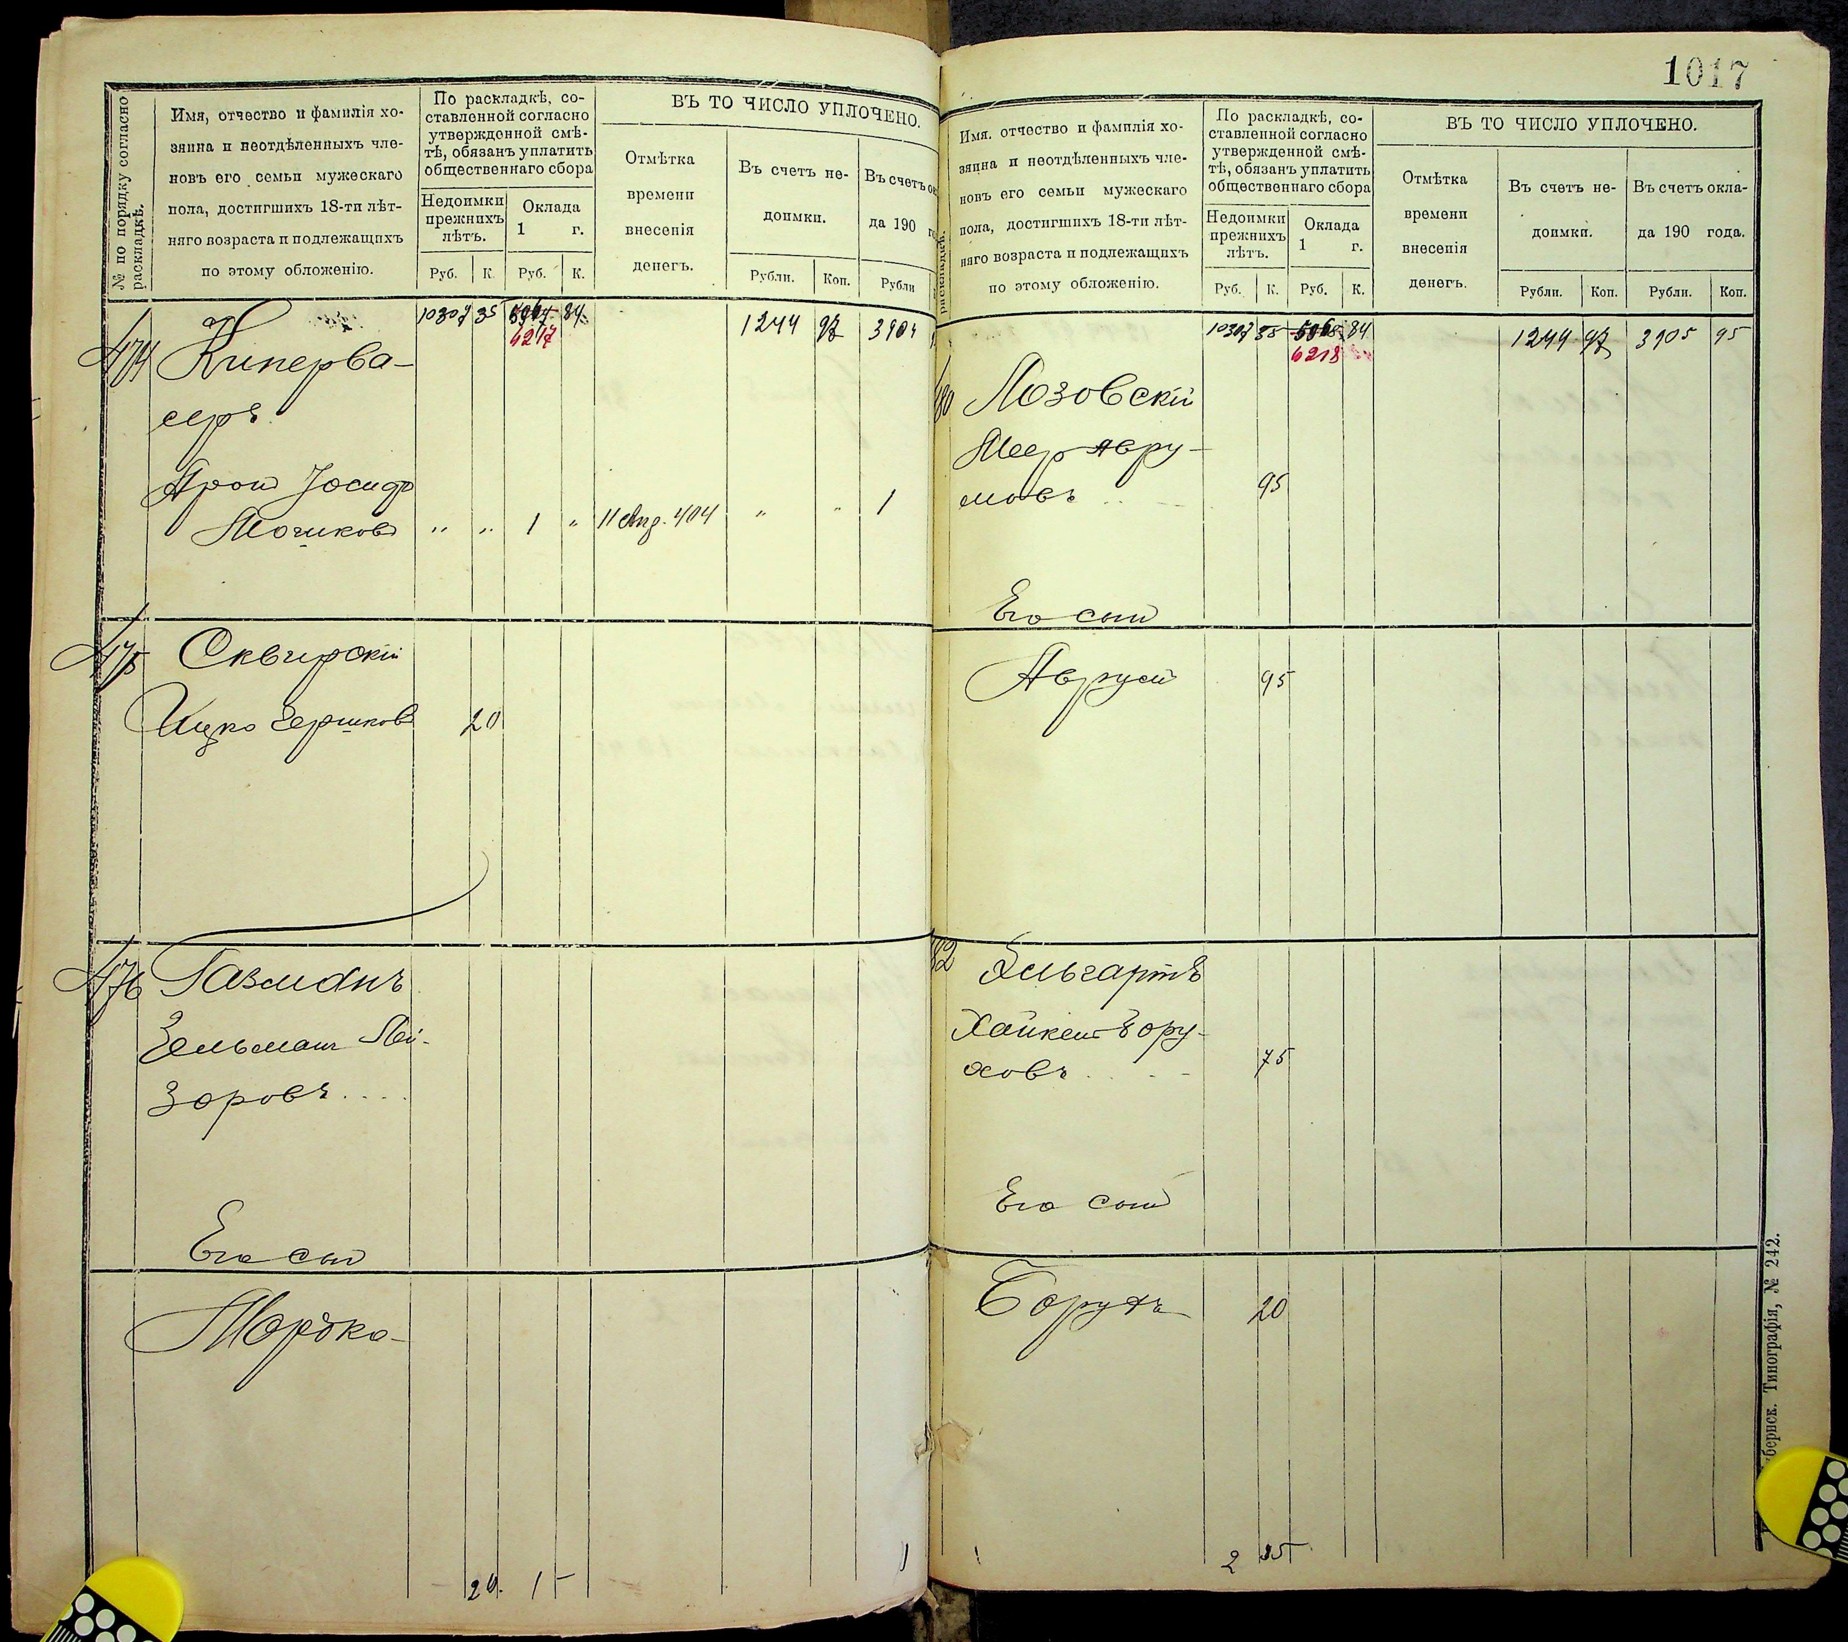 № по порядку согласно раскладкѣ.
Имя, отчество и фамилія хо-
зяина и неотдѣленныхъ чле-
новъ его семьи мужескаго
пола, достигшихъ 18-ти лѣт-
няго возраста и подлежащихъ
по этому обложенію.
По раскладкѣ, со-
ставленной согласно
утвержденной смѣ-
тѣ, обязанъ уплатить
общественнаго сбора
Недоимки
прежнихъ
лѣтъ.
Оклада
1 г.
Руб. К. Руб. К.
ВЪ ТО ЧИСЛО УПЛОЧЕНО.
Отмѣтка
времени
внесенія
денегъ.
Въ счетъ не-
доимки.
Рубли. Коп.
Въ счетъ ок
да 190 го
Рубли
10307 35 84 1244 97 3904
6217
474 Киперва-
серъ
Арон Іосиф
Мошков " " 1 " 11 Апр. 904 " " 1
475 Сквирскій
Ицко Гершков 20
476 Газман
Зельман Лей-
зоровъ . . . .
Его сын
Мордко
20. 1 –
1
1017
раскладкѣ.
Имя. отчество и фамилія хо-
зяина и неотдѣленныхъ чле-
новъ его семьи мужескаго
пола, достигшихъ 18-ти лѣт-
няго возраста и подлежащихъ
по этому обложенію.
По раскладкѣ, со-
ставленной согласно
утвержденной смѣ-
тѣ, обязанъ уплатить
общественнаго сбора
Недоимки
прежнихъ
лѣтъ.
Оклада
1 г.
Руб. К. Руб. К.
ВЪ ТО ЧИСЛО УПЛОЧЕНО.
Отмѣтка
времени
внесенія
денегъ.
Въ счетъ не-
доимки.
Рубли. Коп.
Въ счетъ окла-
да 190 года.
Рубли. Коп.
10307 35 84 1244 97 3905 95
6218
80 Лозовскій
Меер Авру-
мовъ 95
Его сын
Аврум 95
82 Гельгартъ
Хаикель Бору-
ховъ 75
Его сын
Борухъ 20
2 85
берпск. Типографія, № 242.